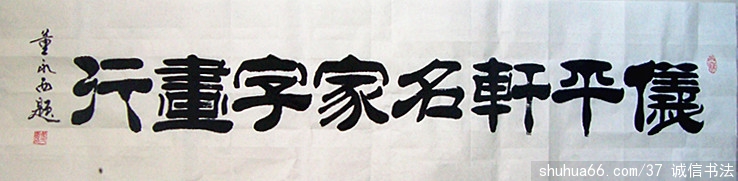 儀平軒名家字畫行
董永安題
shuhua66.com/37 诚信书法